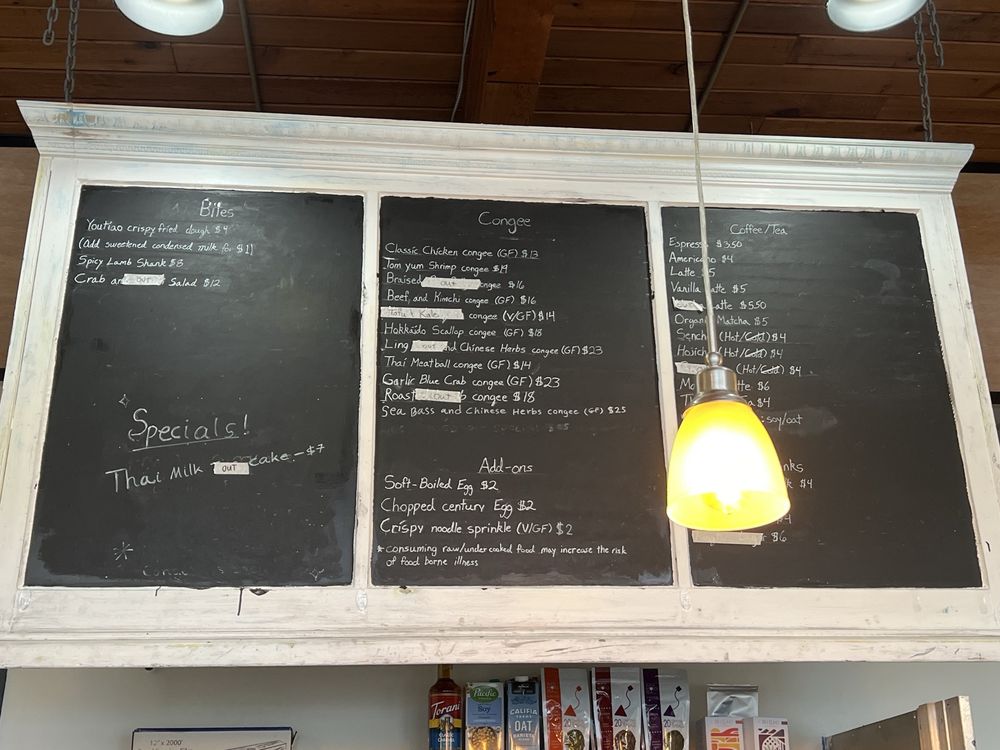 Bites
Youtiao crispy fried dough $4
(Add sweetened condensed milk for $1)
Spicy Lamb Shank $8
Crab an OUT Salad $12
Specials!
Thai Milk OUT cake - $7
Congee
Classic Chicken congee (GF) $13
Tom yum Shrimp congee $19
Braised out ongee $16
Beef and Kimchi congee (GF) $16
Tofu & Kale congee (V/GF) $14
Hokkaido Scallop congee (GF) $18
Ling OUT nd Chinese Herbs congee (GF) $23
Thai Meatball congee (GF) $14
Garlic Blue Crab congee (GF) $23
Roast out congee $18
Sea Bass and Chinese Herbs congee (GF) $25
Add-ons
Soft-Boiled Egg $2
Chopped century Egg $2
Crispy noodle sprinkle (V/GF) $2
* consuming raw/undercooked food may increase the risk
of food borne illness
Coffee/Tea
Espresso $3.50
Americano $4
Latte $5
Vanilla Latte $5
atte $5.50
Organic Matcha $5
Sencha (Hot/Cold) $4
Hojicha (Hot/Cold) $4
(Hot/Cold) $4
tte $6
$4
soy/oat
nks
$4
$4
$6
Torani
Pacific
Soy
CALIFIA
FARMS
OAT
BARISTA
BLEND
20
20
20
12" x 2000'